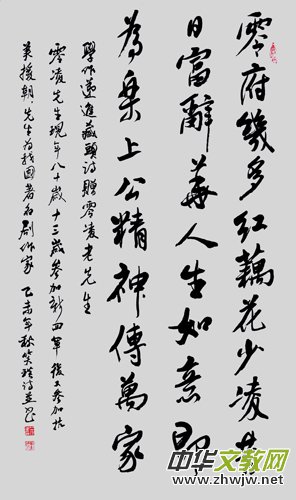 零府幾多紅藕花少凌昔
日富辭華人生如意即
為樂上公精神傳萬家
學作遞進藏頭詩贈零凌老先生
零凌先生現年八十歲十三歲參加新四軍後又參加抗
美援朝先生為我國著名劇作家 乙未年秋笑詩並書
中华文教网
www.zhwjw.net